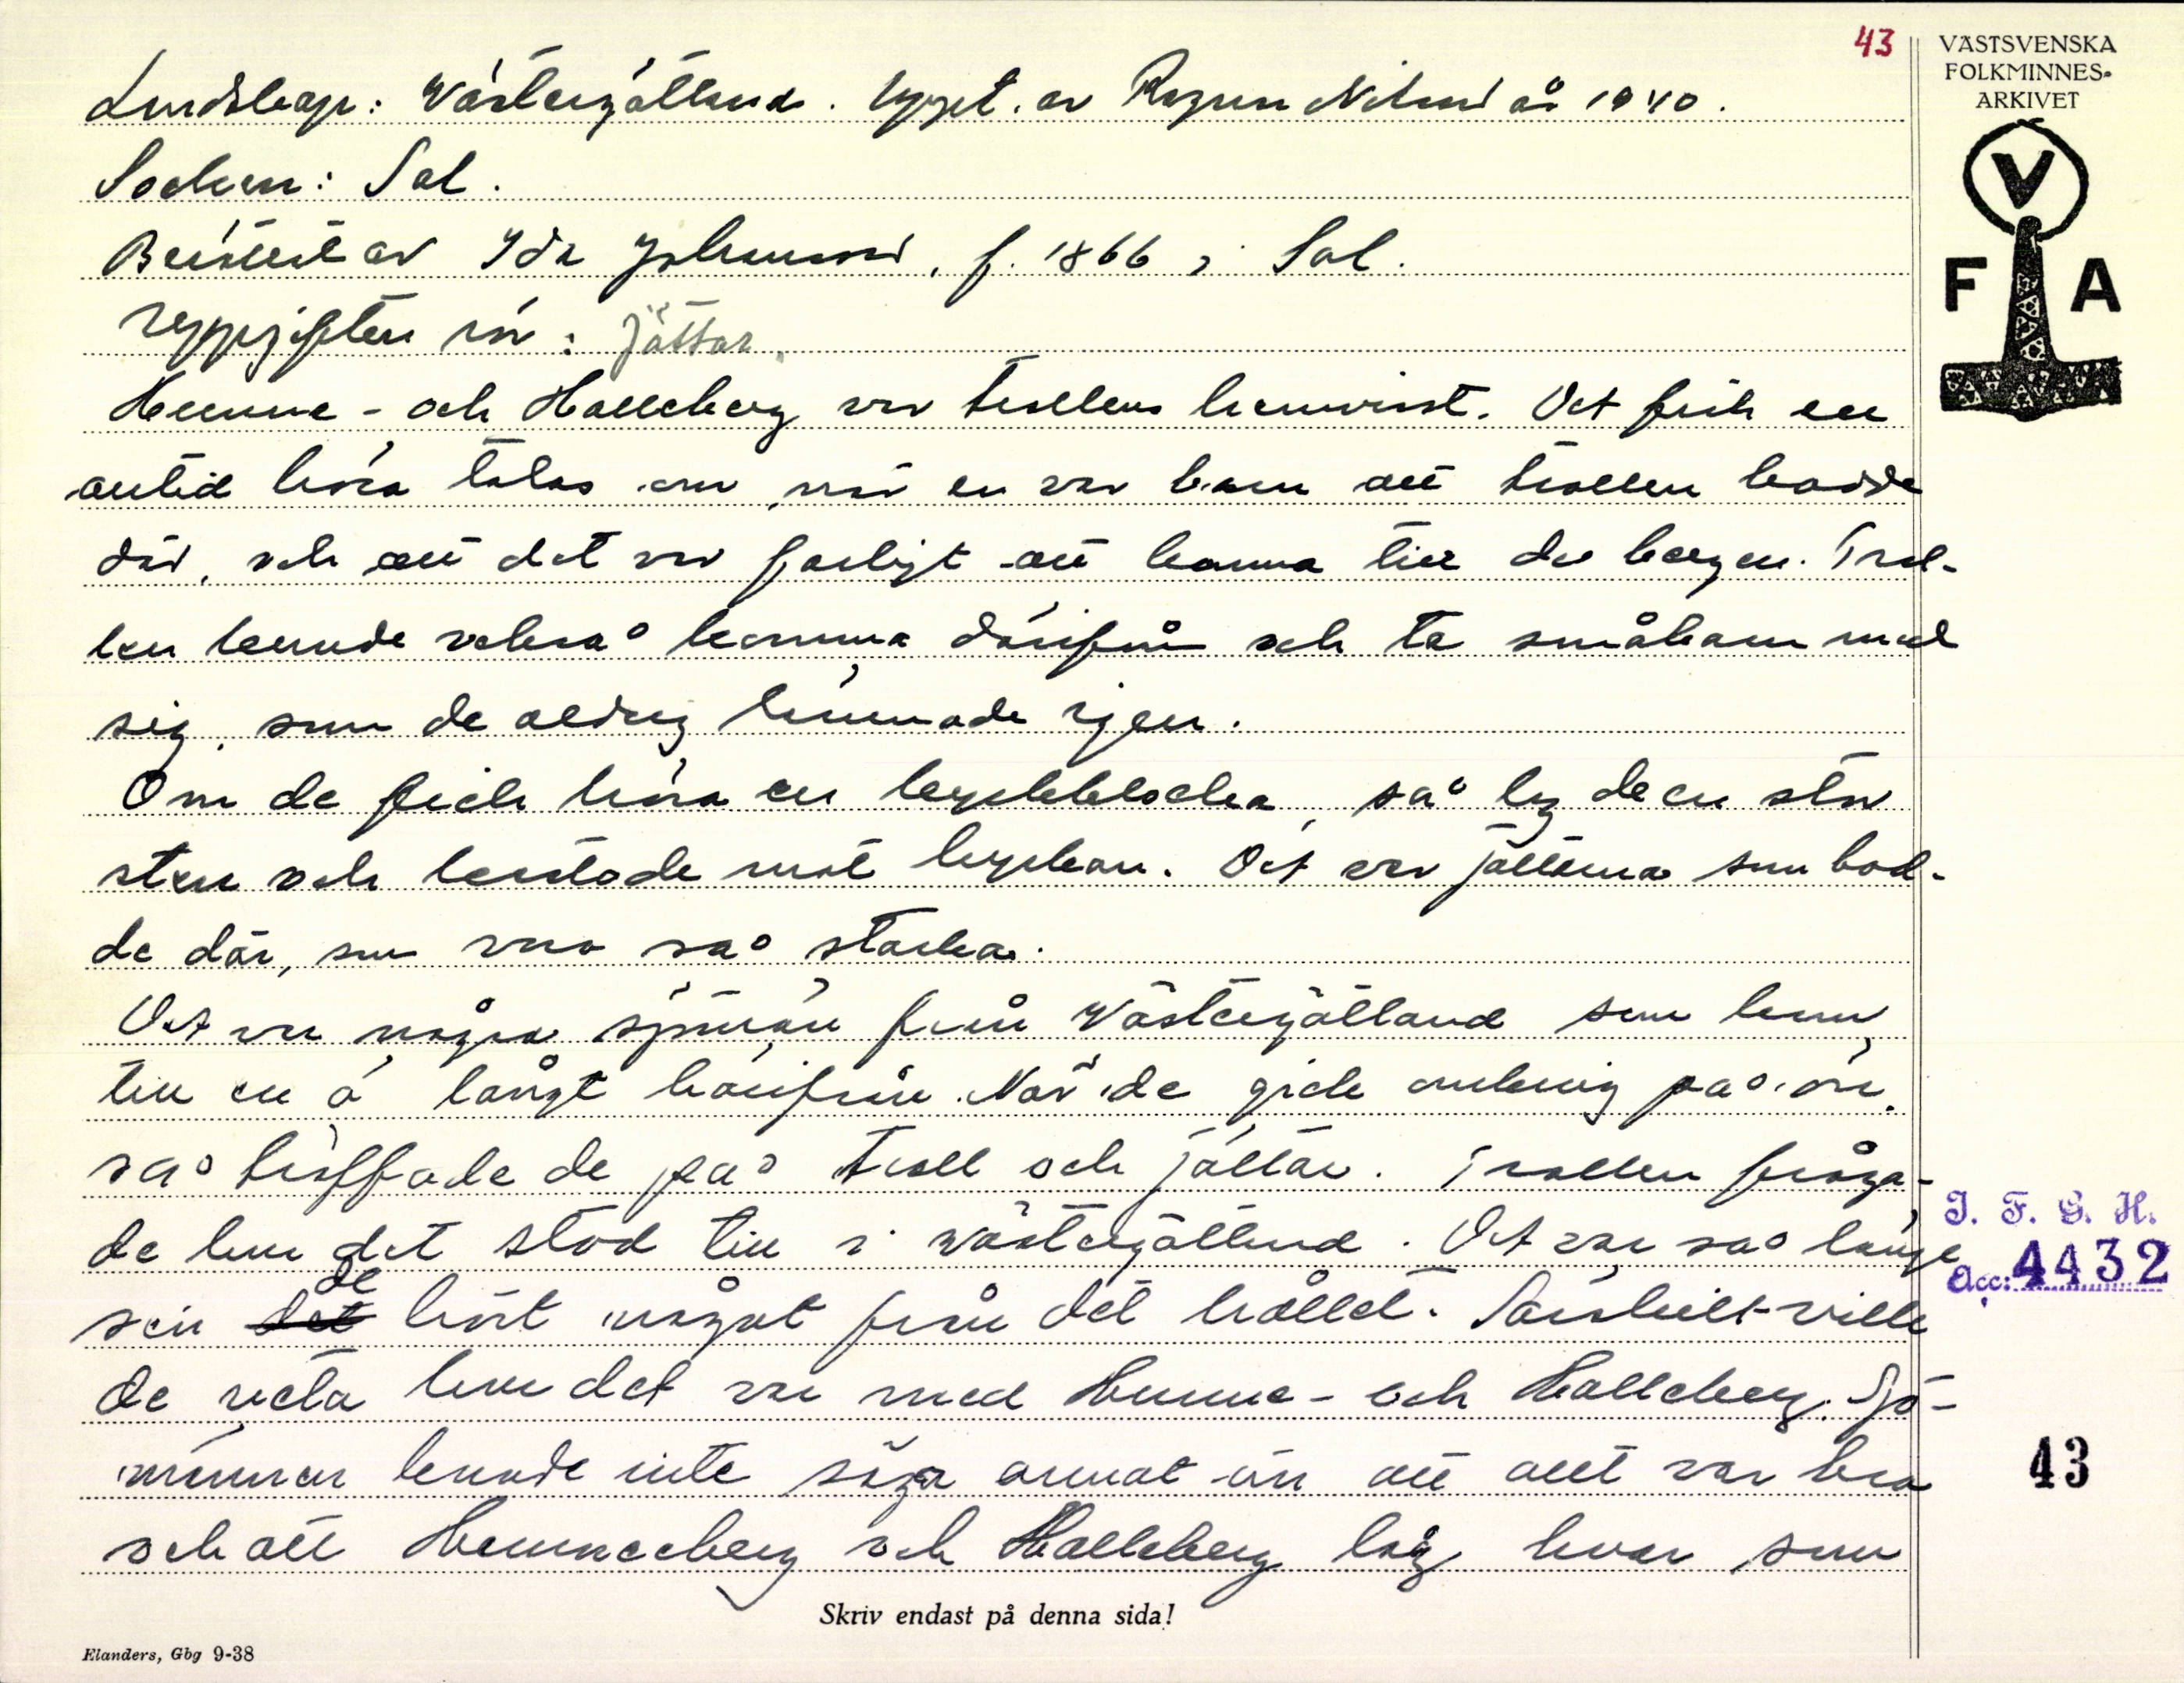 43
VÄSTSVENSKA
FOLKMINNES-
ARKIVET
V
F A
Landskap: Västergötland. Uppt. av Ragnar Nilsson år 1940.
Socken: Sal.
Berättat av Ida Johansson, f. 1866 i Sal.
Uppgiften rör: Jättar.
Hunne- och Halleberg var trollens hemvist. Det fick en
alltid höra talas om när en var barn att trollen bodde
där, och att det var farligt att komma till de bergen. Trol-
len kunde också komma därifrån och ta småbarn med
sig, som de aldrig lämnade igen.
Om de fick höra en kyrkklocka, så tog de en stor
sten och kastade mot kyrkan. Det var jättarna som bod-
de där, som voro så starka.
Det var några sjömän från Västergötland som kom
till en ö långt härifrån. När de gick omkring på ön,
så träffade de på troll och jättar. Trollen fråga-
de hur det stod till i Västergötland. Det var så länge
sen det de hört något från det hållet. Särskilt ville
de veta hur det var med Hunne- och Halleberg. Sjö-
männen kunde inte säga annat än att allt var bra
och att Hunneberg och Halleberg låg kvar som
Skriv endast på denna sida!
Elanders, Gbg 9-38
I. F. G. H.
Acc: 4432
43